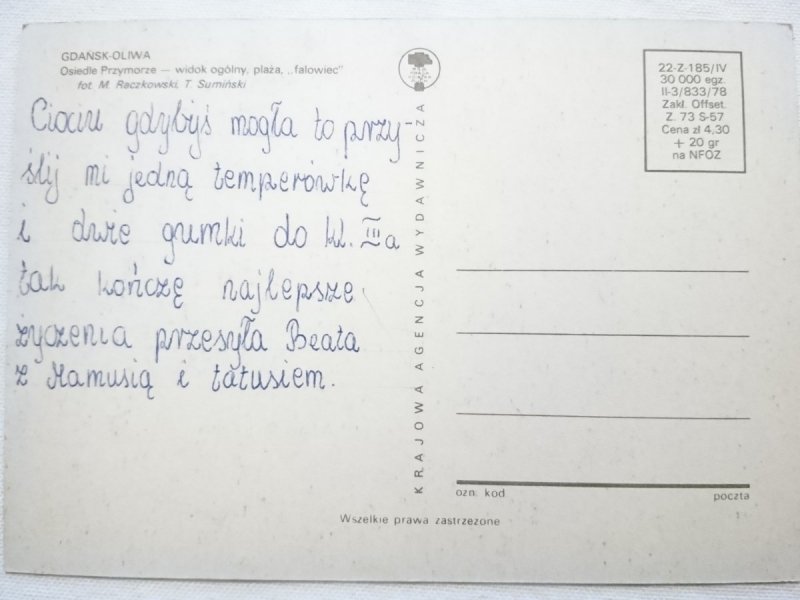 GDAŃSK-OLIWA
Osiedle Przymorze — widok ogólny, plaża, „falowiec"
fot. M. Raczkowski, T. Sumiński
Ciociu gdybyś mogła to przy-
ślij mi jedną temperówkę
i dwie gumki do kl. IIIa
tak kończę najlepsze
życzenia przesyła Beata
z Mamusią i tatusiem.
KRAJOWA AGENCJA WYDAWNICZA
22-Z-185/IV
30 000 egz.
II-3/833/78
Zakł. Offset.
Z. 73 S-57
Cena zł 4,30
+ 20 gr
na NFOZ
ozn. kod
poczta
Wszelkie prawa zastrzeżone